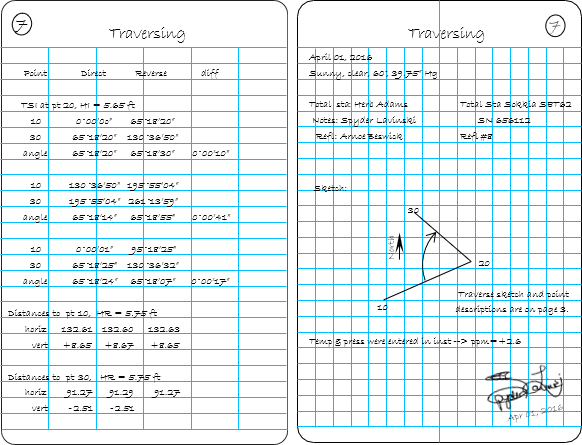 7
Traversing
Point Direct Reverse diff
TSI at pt 20, HI = 5.65 ft
10 0°00'00" 65°18'20"
30 65°18'20" 130°36'50"
angle 65°18'20" 65°18'30" 0°00'10"
10 130°36'50" 195°55'04"
30 195°55'04" 261°13'59"
angle 65°18'14" 65°18'55" 0°00'41"
10 0°00'01" 95°18'25"
30 65°18'25" 130°36'32"
angle 65°18'24" 65°18'07" 0°00'17"
Distances to pt 10, HR = 5.75 ft
horiz 132.61 132.60 132.63
vert +8.65 +8.67 +8.65
Distances to pt 30, HR = 5.75 ft
horiz 91.27 91.29 91.27
vert -2.51 -2.51
7
Traversing
April 01, 2016
Sunny, clear, 60° 39.75" Hg
Total sta: Herc Adams Total Sta Sokkia SET62
Notes: Spyder Lavinski SN 656112
Refl: Arnce Beswick Refl #8
Sketch:
30
North
20
10
Traverse sketch and point
descriptions are on page 3.
Temp & press were entered in inst --> ppm = +2.6
Apr 01, 2016